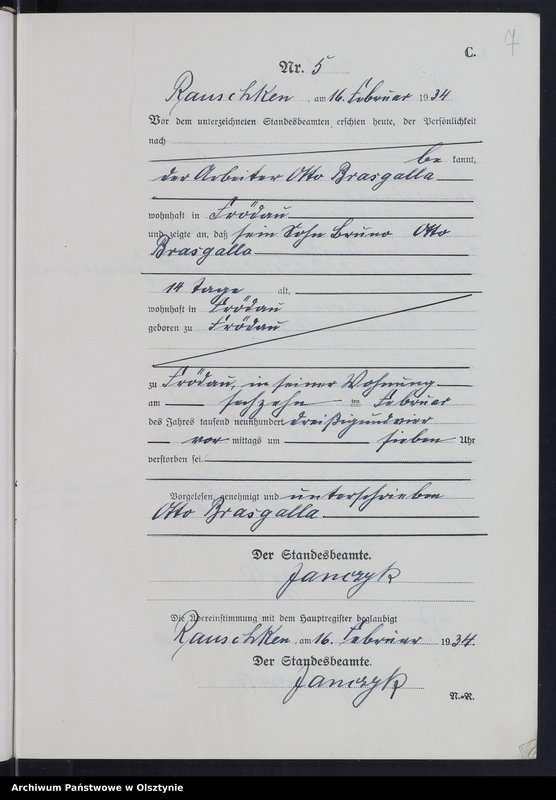 7
C.
Nr. 5
Rauschken, am 16. Februar 1934.
Vor dem unterzeichneten Standesbeamten erschien heute, der Persönlichkeit
nach
be kannt,
der Arbeiter Otto Brasgalla
wohnhaft in Frödau
und zeigte an, daß sein Sohn Bruno Otto
Brasgalla
14 Tage alt,
wohnhaft in Frödau
geboren zu Frödau
zu Frödau, in seiner Wohnung
am sechzehn ten Februar
des Jahres tausend neunhundert dreißigundvier
vor mittags um sieben Uhr
verstorben sei.
Vorgelesen, genehmigt und unterschrieben
Otto Brasgalla
Der Standesbeamte.
Janczyk
Die Übereinstimmung mit dem Hauptregister beglaubigt
Rauschken, am 16. Februar 1934.
Der Standesbeamte.
Janczyk
N.-R.
Archiwum Państwowe w Olsztynie